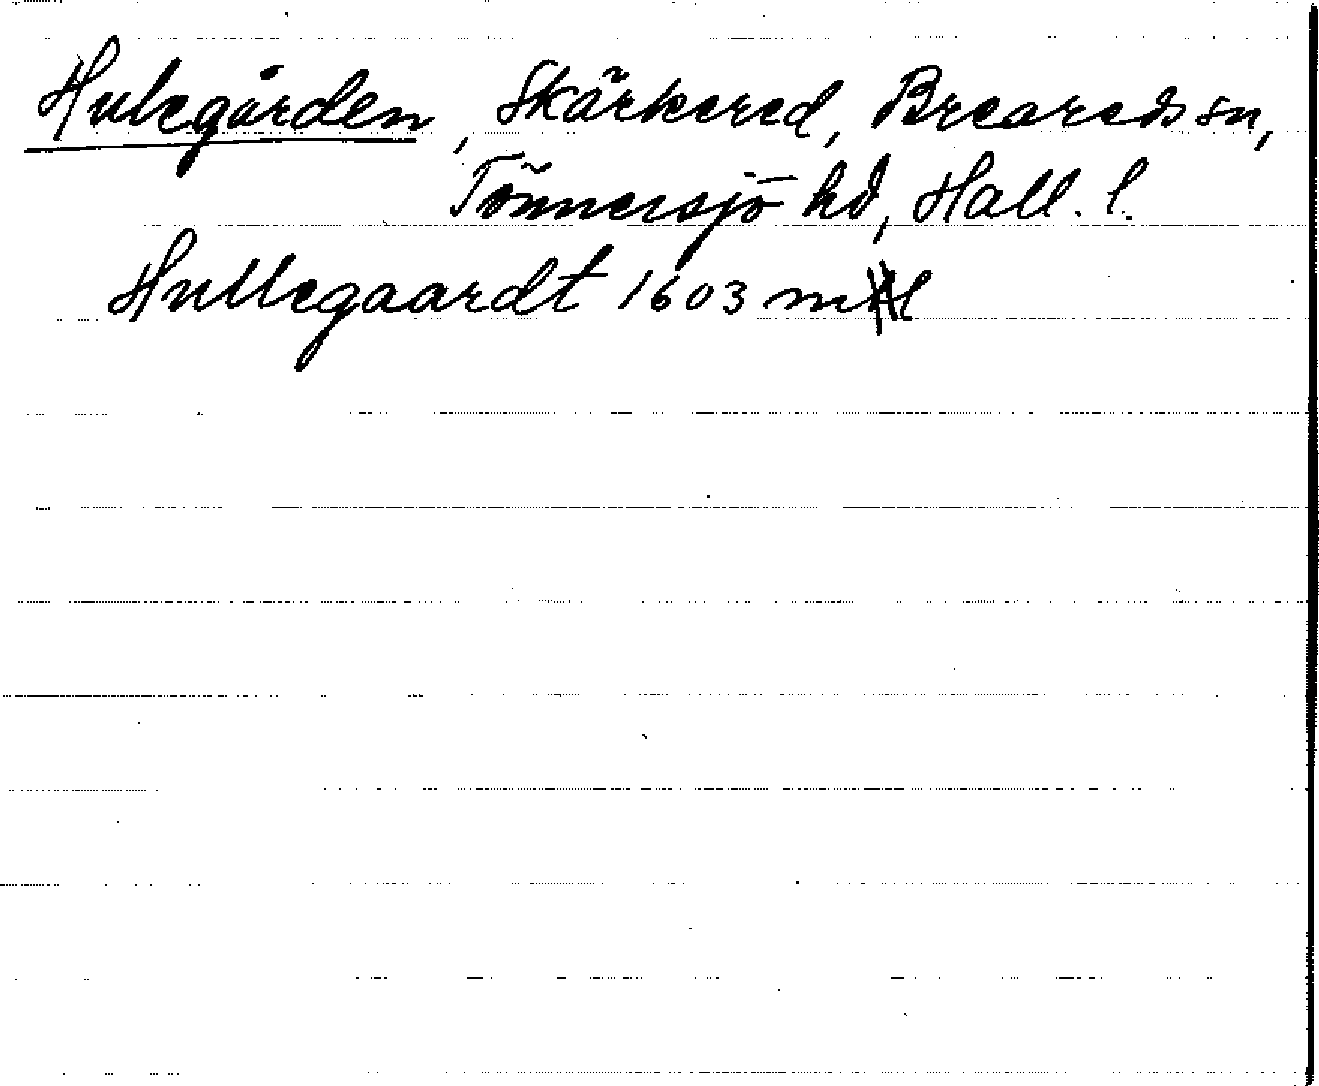 Hulegården, Skärkered, Breareds sn,
Tönnersjö hd, Hall. l.
Hullegaardt 1603